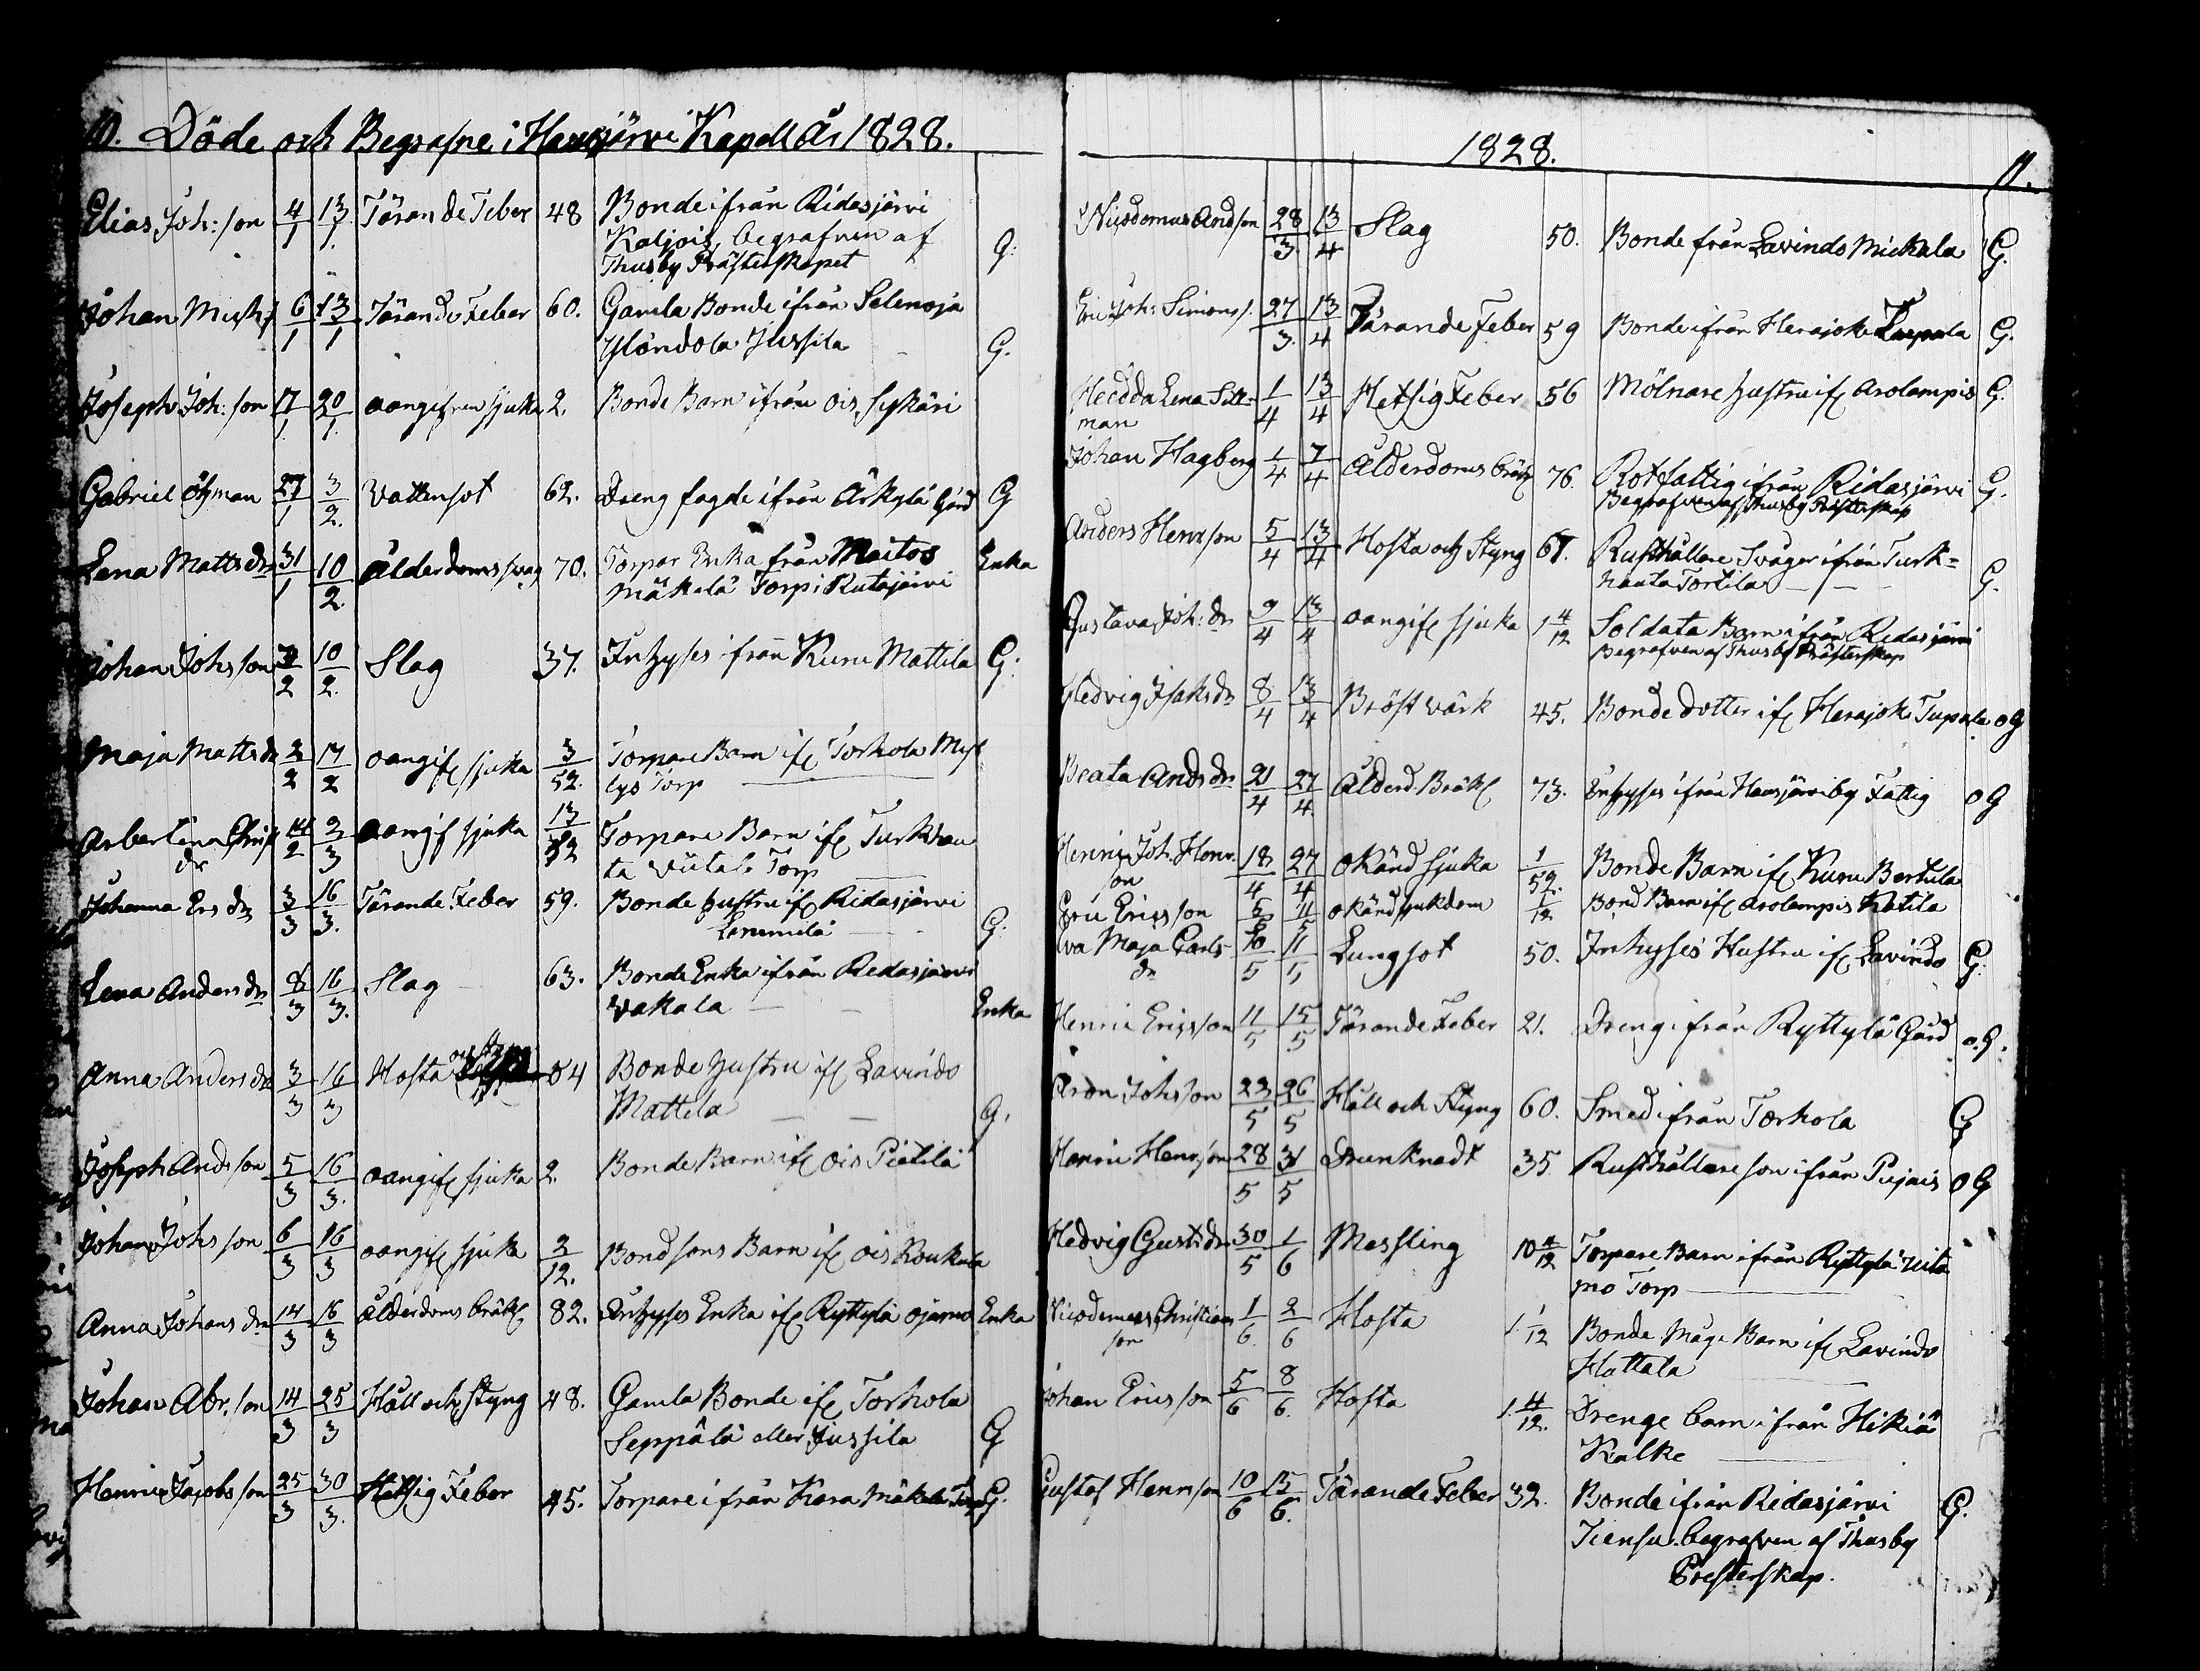 10. Döde och Begrafne i Hausjärvi Kapell År 1828.
Elias Joh: son 4/1 13/1. Tärande Feber 48 Bonde ifrån Ridasjärvi
Kaljois, begrafven af
Thusby Prästerskapet G.
Johan Mich 6/1 13/1 Tärande Feber 60. Gamla Bonde ifrån Selenoja
Ylöndola Jussila G.
Joseph Joh: son 17/1. 20/1. oangifven sjuka 2. Bonde Barn ifrån ois, sykäri
Gabriel Öhman 27/1 3/2. Vattensot 62. Dreng fogde ifrån Ärkylä Gård G
Lena Matts dr 31/1 10/2. Ålderdoms svag 70. Torpar Enka från Maitos
mäkelä Torp i Rutajärvi Enka
Johan Johs son 2 10/2. Slag 37. Inhyses ifrån Kuru Mattila G.
Maja Matts dr 2/2 17/2 oangif sjuka 3/52. Torpare Barn if Torhola Myl
lys Torp
Arbertina Christ 14/2 2/3 oangif sjuka 13/52 Torpare Barn if Turkhau
dr ta Viitala Torp
Johanna Ers dr 3/3 16/3. Tärande Feber 59. Bonde hustru if Ridasjärvi
Lemmilä G.
Lena Anders dr 8/3 16/3. Slag 63. Bonde Enka ifrån Ridasjärvi
Vakala Enka
Anna Anders dr 3/3 16/3 Hosta 54 Bonde hustru if Lavindo
Mattila G.
Joseph Ands son 5/3 16/3. oangif sjuka 2. Bonde Barn if Ois Pietilä
Johan Johs son 6/3 16/3 oangif sjuka 2/12. Bond sons Barn if ois Roukala
Anna Johans dr 14/3 16/3 Ålderdoms bräkl 82. Inhyses Enka if Ryttylä ojamo Enka
Johan Abr. son 14/3 25/3 Håll och Styng 48. Gamla Bonde if Torhola
Seppälä eller Jussila G
Henric Jacobs son 25/3 30/3. Hetsig Feber 45. Torpare ifrån Kara Mäkelä Torp G.
1828. 11.
Nicodemus And son 28/3. 13/4 Slag 50. Bonde från Lavindo Mickala G.
Eric Joh: Simons s. 27/3. 13/4 Tärande Feber 59 Bonde ifrån Herajoki G.
Hedda Lena Sill= 1/4 13/4 Hetsig Feber 56 Mölnare hustru if Arolampis G.
man
Johan Hagberg 1/4 7/4 Ålderdoms bräkl 76. Rotfattig ifrån Ridasjärvi G.
Begrafven af Thusby Prästerskap
Anders Henr son 5/4 13/4 Hosta och Styng 67. Rusthållare Svåger ifrån Turk=
hauta Tortila G.
Gustava Joh: dr 9/4 13/4 oangif sjuka 1 4/12 Soldata Barn ifrån Ridasjärvi
Begrafven af Thusby Prästerskap
Hedvig Isaks dr 8/4 13/4 Bröst värk 45. Bonde dotter if Herajoki Tupala oG
Beata Ands dr 21/4 27/4. Ålderd. Bräkl 73. Inhyses ifrån Hausjärvi by Fattig oG
Henric Joh. Henr. 18/4 27/4 okänd sjuka 1/52. Bonde Barn if Kuru Bertila
son
Eric Erics son 11/5 okänd sjukdom 1/12 Bond Barn if Arolampis Katila
Eva Maja Carls 11/5 Lungsot 50. Inhyses Hustru if Lavindo G.
dr
Henric Erics son 11/5 15/5 Tärande Feber 21. Dreng ifrån Ryttylä Gård o.G.
Aron Johs son 23/5 26/5 Håll och Styng 60. Smed ifrån Torhola G
Henric Henr son 28/5 31/5 Drunknadt 35. Rusthållare son ifrån Pujais oG
Hedvig Gusts dr 30/5 1/6 Messling 10 4/12 Torpare Barn ifrån Ryttylä Uita
mo Torp
Nicodemus Christians 1/6. 2/6 Hosta 1. 1/12 Bonde Måge Barn if Lavindo
son Hattala
Johan Erics son 5/6 8/6. Hosta 1. 4/12. Drenge barn ifrån Hikiä
Kalke
Gustaf Henr son 10/6 15/6. Tärande Feber 32. Bonde ifrån Ridasjärvi G.
Jiensu begrafven af Thusby
Presterskap.